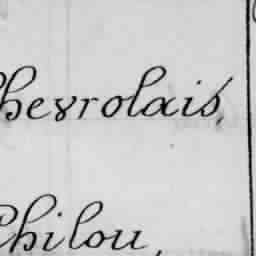 Chevrolais,
Chilou,